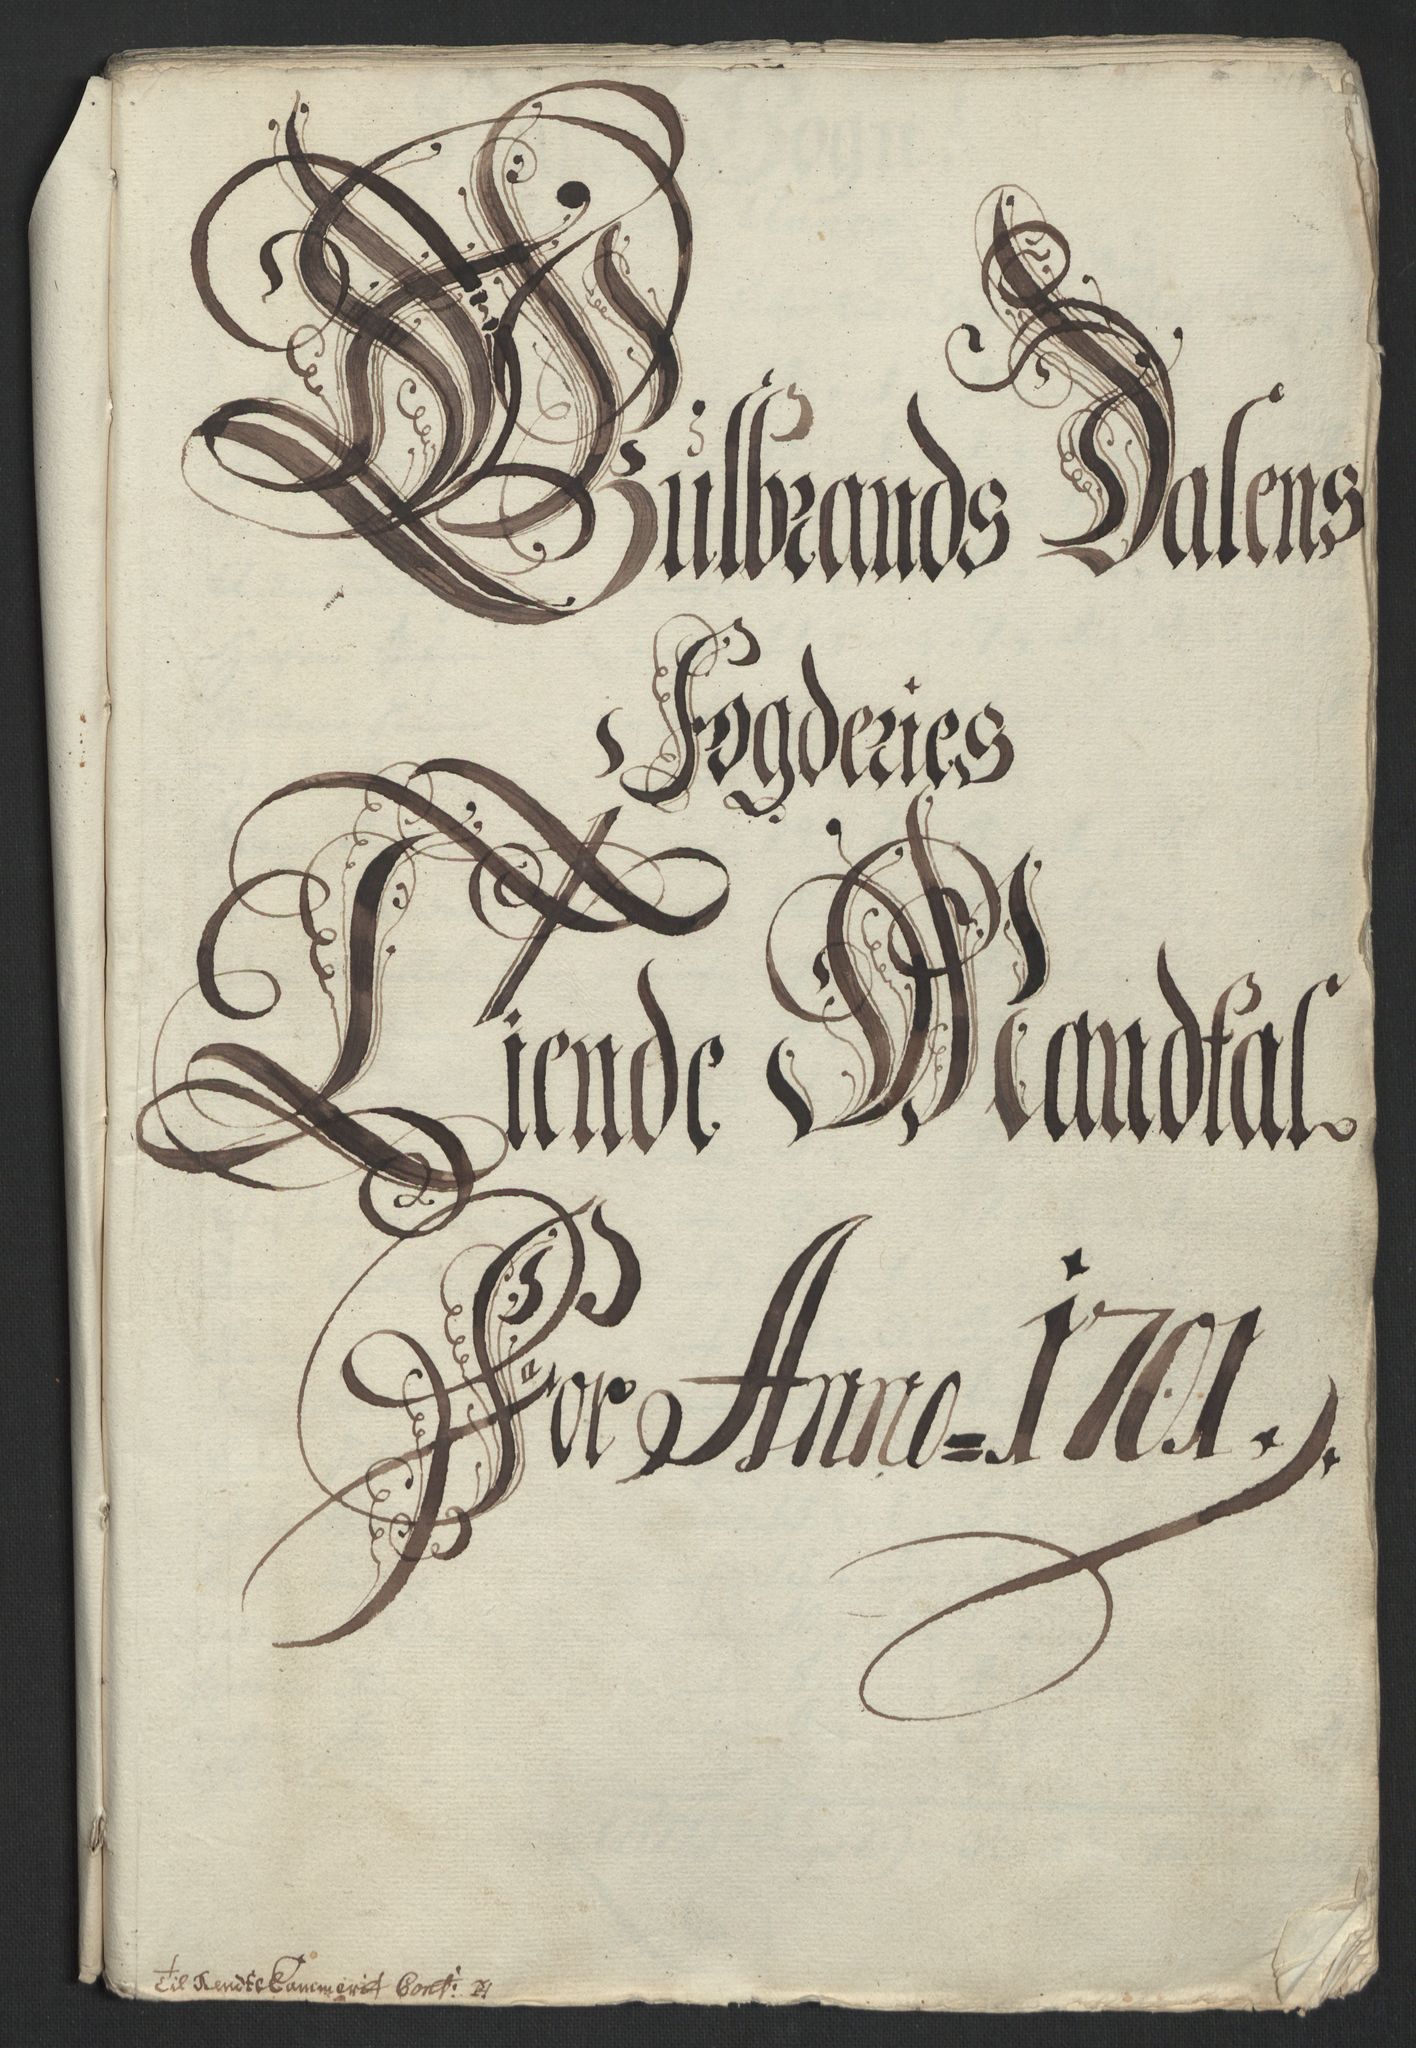 Gülbrands Dalens
Fogderies
Tiende Mandtal
For Anno = 1701.
Til Rendte Cammerit